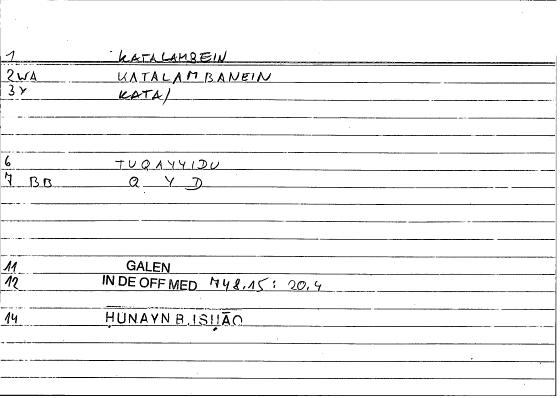 1 KATALAMBEIN
2WA KATALAMBANEIN
3Y KATA/
6 TUQAYYIDU
7 BB Q Y D
11 GALEN
12 IN DE OFF MED 748.15: 20.4
14 ḤUNAYN B. ISḤĀQ